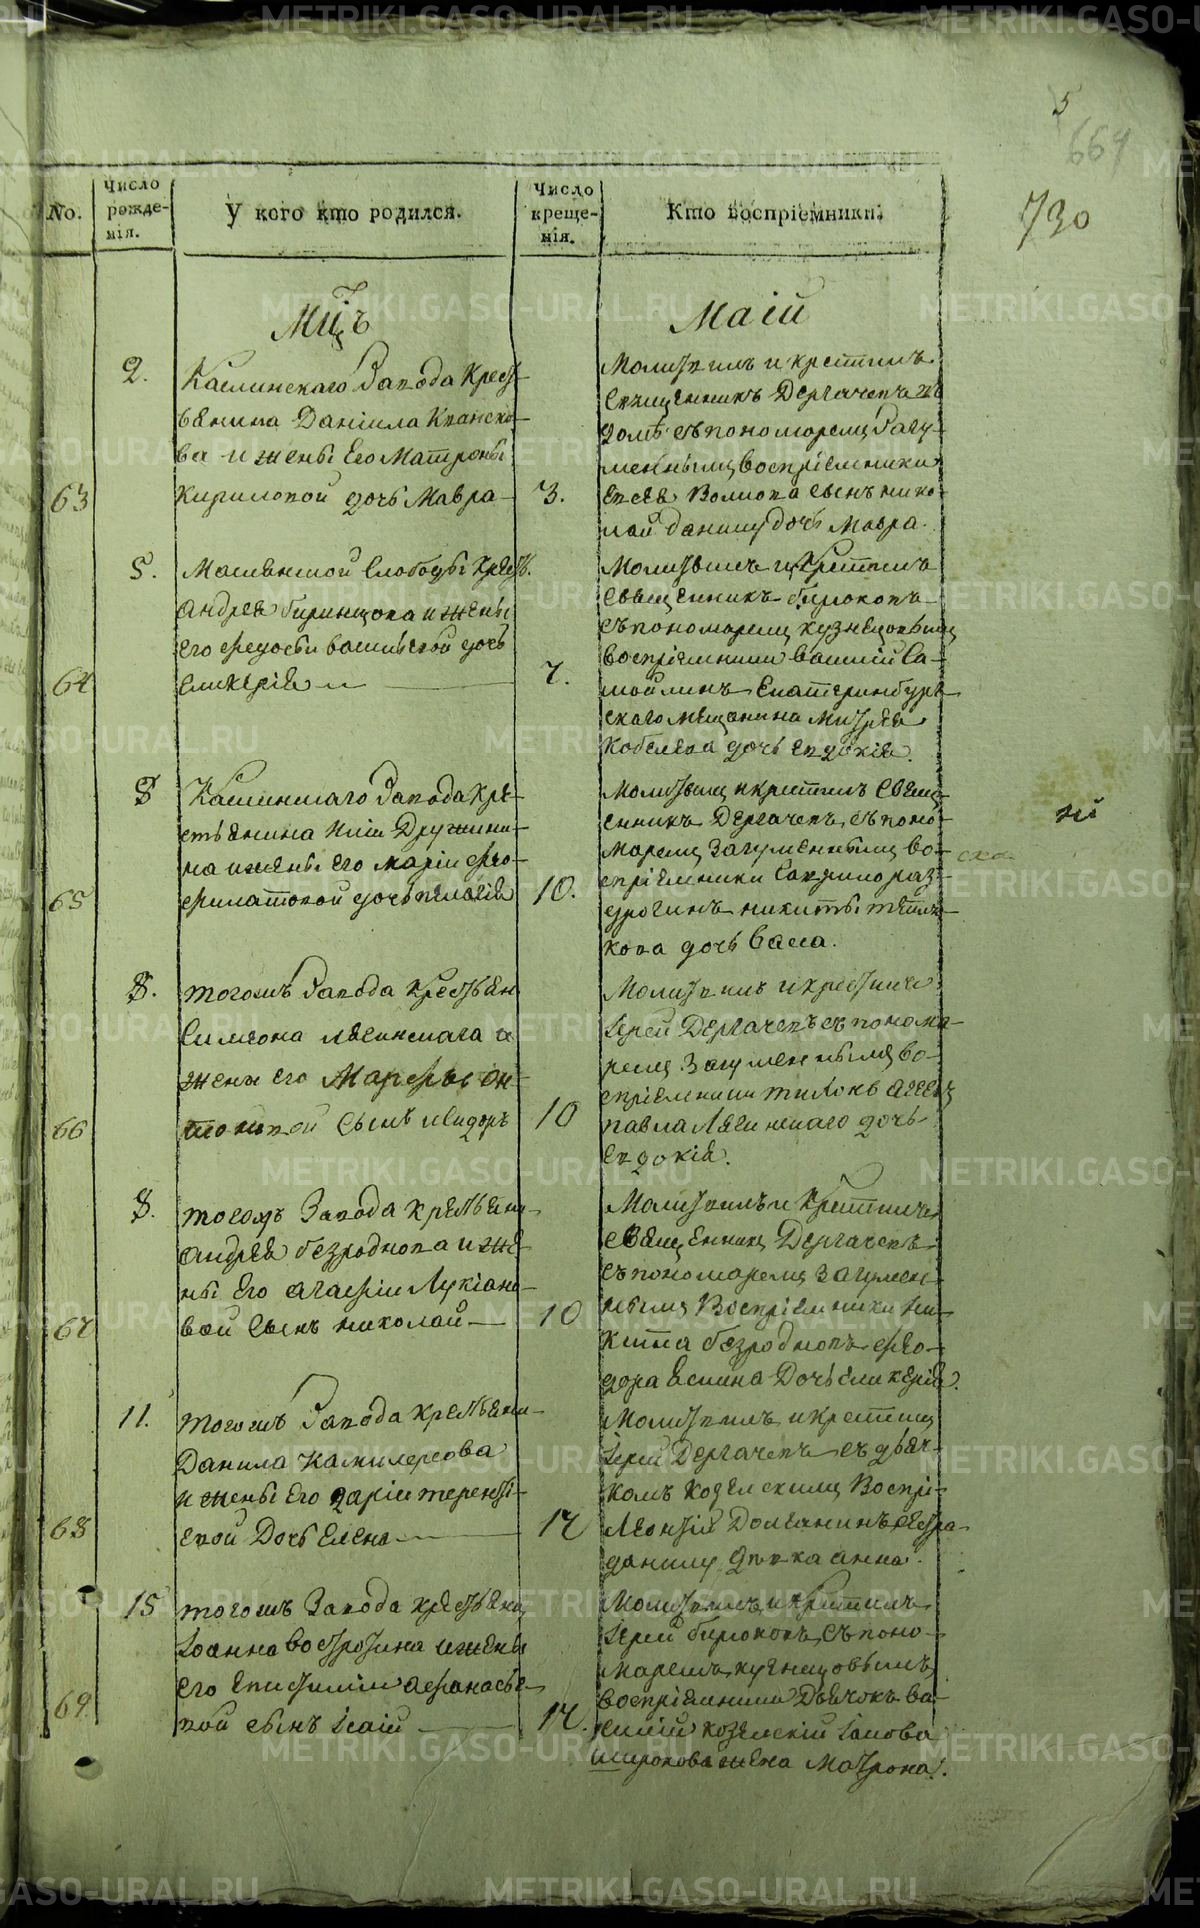 5
664
730
No.
Число рожде-нія.
У кого кто родился.
Число креще-нія.
Кто воспріемники.
Мцъ
Маій
2.
Каслинскаго Завода Крест-
ьянина Даніила Квонско-
ва и жены Его Матроны
63
Кириловой дочь Мавра
3.
Молитвилъ и крестилъ
Священникъ Дергачевъ въ
домѣ съ пономаремъ Загу-
меннымъ Воспріемники
сынъ нико-
лай данилу дочь Мавра.
5.
Слободы Крест.
Андрея Биринцова и жены
его Федосьи васильевой дочь
64
Гликерія
7.
Молитвилъ и Крестилъ
Священникъ Бирюковъ
съ пономаремъ кузнецовымъ
воспріемники василій Са-
мойлинъ Екатеринбург-
скаго мещанина Андрея
Кобелева дочь Евдокія.
8
Каслинскаго Завода Кре-
стьянина Иліи Дружини-
на и жены Его маріи Фео-
65
филатовой дочь пелагія
10.
Молитвилъ и Крестилъ Свящ-
енникъ Дергачевъ, съ поно-
маремъ Загуменнымъ во-
спріемники
никиты
кова дочь Васса.
8.
тогожъ Завода Крестьян
Симеона лясинскаго и
жены его Марфы Ан-
66
тоновой Сынъ исидоръ
10
Молитвилъ и крестилъ
Іерей Дергачевъ съ понома-
ремъ Загуменнымъ во-
спріемники тихонъ агеевъ
павла Лясинскаго дочь
Евдокія.
8.
тогожъ Завода крестьяни-
Андрея безроднова и же-
ны Его агафіи Лукіано-
67
вой Сынъ николай
10
Молитвилъ и Крестилъ
священникъ Дергачевъ
съ пономаремъ Загумен-
нымъ Воспріемники ни-
кита безродновъ фео-
дора Дочь гликерія.
11.
тогожъ Завода крестьяни-
Данила
и жены Его даріи теренті-
68
евой Дочь Елена
12
Молитвилъ и крестилъ
Іерей Дергачевъ съ дьяч-
комъ козелскимъ Воспрі-
Леонтій
данилу дѣвка анна.
15
тогожъ Завода крестьяни
Іоанна востротина и жены
его Епистиміи афанасье-
69.
вой сынъ Ісаій
17.
Молитвилъ и Крестилъ
Іерей бирюковъ, съ поно-
маремъ, кузнецовымъ
воспріемники Дьячокъ ва-
силій козелскій Іакова
широкова жена Матрона.